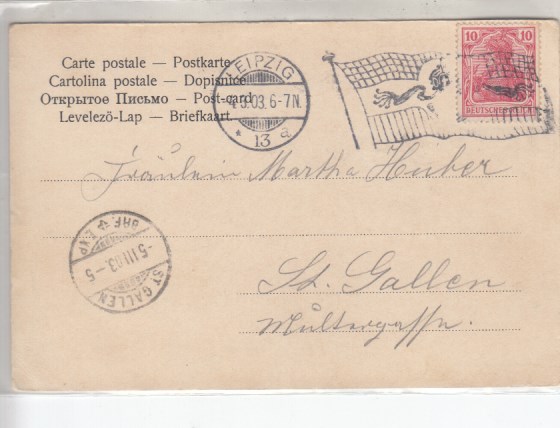 Carte postale — Postkarte
Cartolina postale — Dopisnice
Открытое Письмо — Post-card
Levelező-Lap — Briefkaart
LEIPZIG
3.03. 6-7N.
* 13 a
10 10
DEUTSCHES REICH
Fräulein Martha Huber
BRF. EXP
-5.III.03.-5
ST GALLEN
St. Gallen
Multergasse.